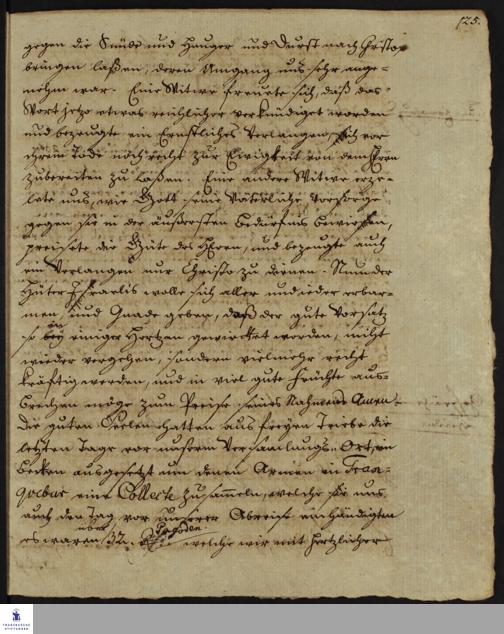 125.
gegen die Sünde und Hunger und Durst nach Christo
bringen laßen, deren Umgang uns sehr ange-
nehm war. Eine Witwe freuete sich, daß das
Wort jetzo etwas reichlicher verkündiget worden
und bezeugte ein Ernstliches Verlangen sich vor
ihrem Tode noch recht zur Ewigkeit von dem Herrn
zubereiten zu laßen. Eine andere Witwe erze-
lete uns, wie Gott seine Väterliche Vorsorge
gegen sie in der äußersten Bedürfnis bewiesen,
preisete die Güte des Herrn, und bezeugte auch
ein Verlangen nur Christo zu dienen. Nun der
Hüter Israelis wolle sich aller und jeder erbar-
men, und Gnade geben, daß der gute Vorsatz
so in einiger Hertzen gewircket worden, nicht
wieder vergehen, sondern vielmehr recht
kräftig werden, und in viel gute Früchte aus-
brechen möge zum Preise seines Nahmens Amen.
Die guten Seelen hatten aus freyem Triebe die
letzten Tage vor unserm Versamlungs-Ort, ein
Becken ausgesetzt um denen Armen in Tran-
quebar eine Collecte zu sammeln, welche sie uns
auch den Tag vor unserer Abreise einhändigten
es waren über 32. Pagoden welche wir mit hertzlicher
FRANCKESCHE
STIFTUNGEN